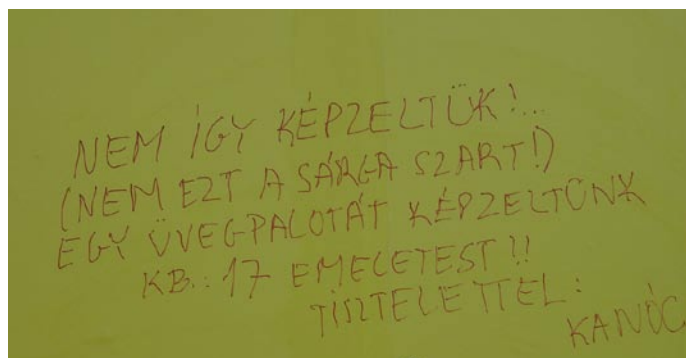 NEM ÍGY KÉPZELTÜK!...
(NEM EZT A SÁRGA SZART!)
EGY ÜVEGPALOTÁT KÉPZELTÜNK
KB.: 17 EMELETEST!!
TISZTELETTEL:
KANÓC